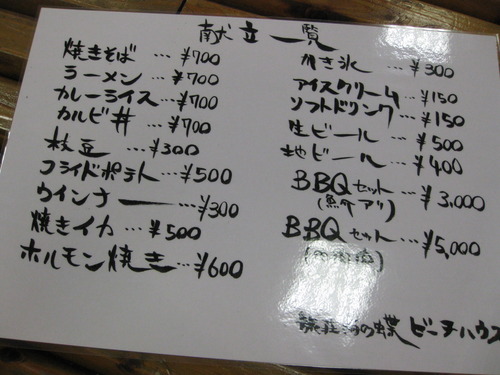 献立一覧
焼きそば…¥700
ラーメン…¥700
カレーライス…¥700
カルビ丼…¥700
枝豆…¥300
フライドポテト…¥500
ウインナー¥300
焼きイカ…¥500
ホルモン焼き…¥600
かき氷…¥300
アイスクリーム…¥150
ソフトドリンク…¥150
生ビール…¥500
地ビール…¥400
BBQセット…¥3,000
(魚介アリ)
BBQセット…¥5,000
海の蝶 ビーチハウス